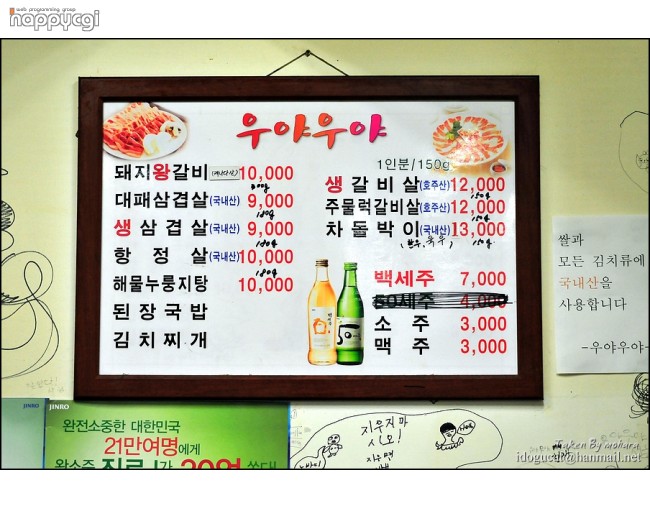 web programming group
nappycgi
우야우야
돼지왕갈비 10,000
대패삼겹살(국내산) 9,000
180g
생삼겹살(국내산) 9,000
180g
항정살(국내산) 10,000
180g
해물누룽지탕 10,000
된장국밥
김치찌개
1인분/150g
생갈비살(호주산) 12,000
150g
주물럭갈비살(호주산) 12,000
150g
차돌박이(국내산) 13,000
150g
백세주 7,000
50세주 4,000
소주 3,000
맥주 3,000
쌀과
모든 김치류에
국내산을
사용합니다
-우야우야-
JINRO JINRO
완전소중한 대한민국
21만여명에게
지우지마
시오!
Taken By mohara
idogucat@hanmail.net